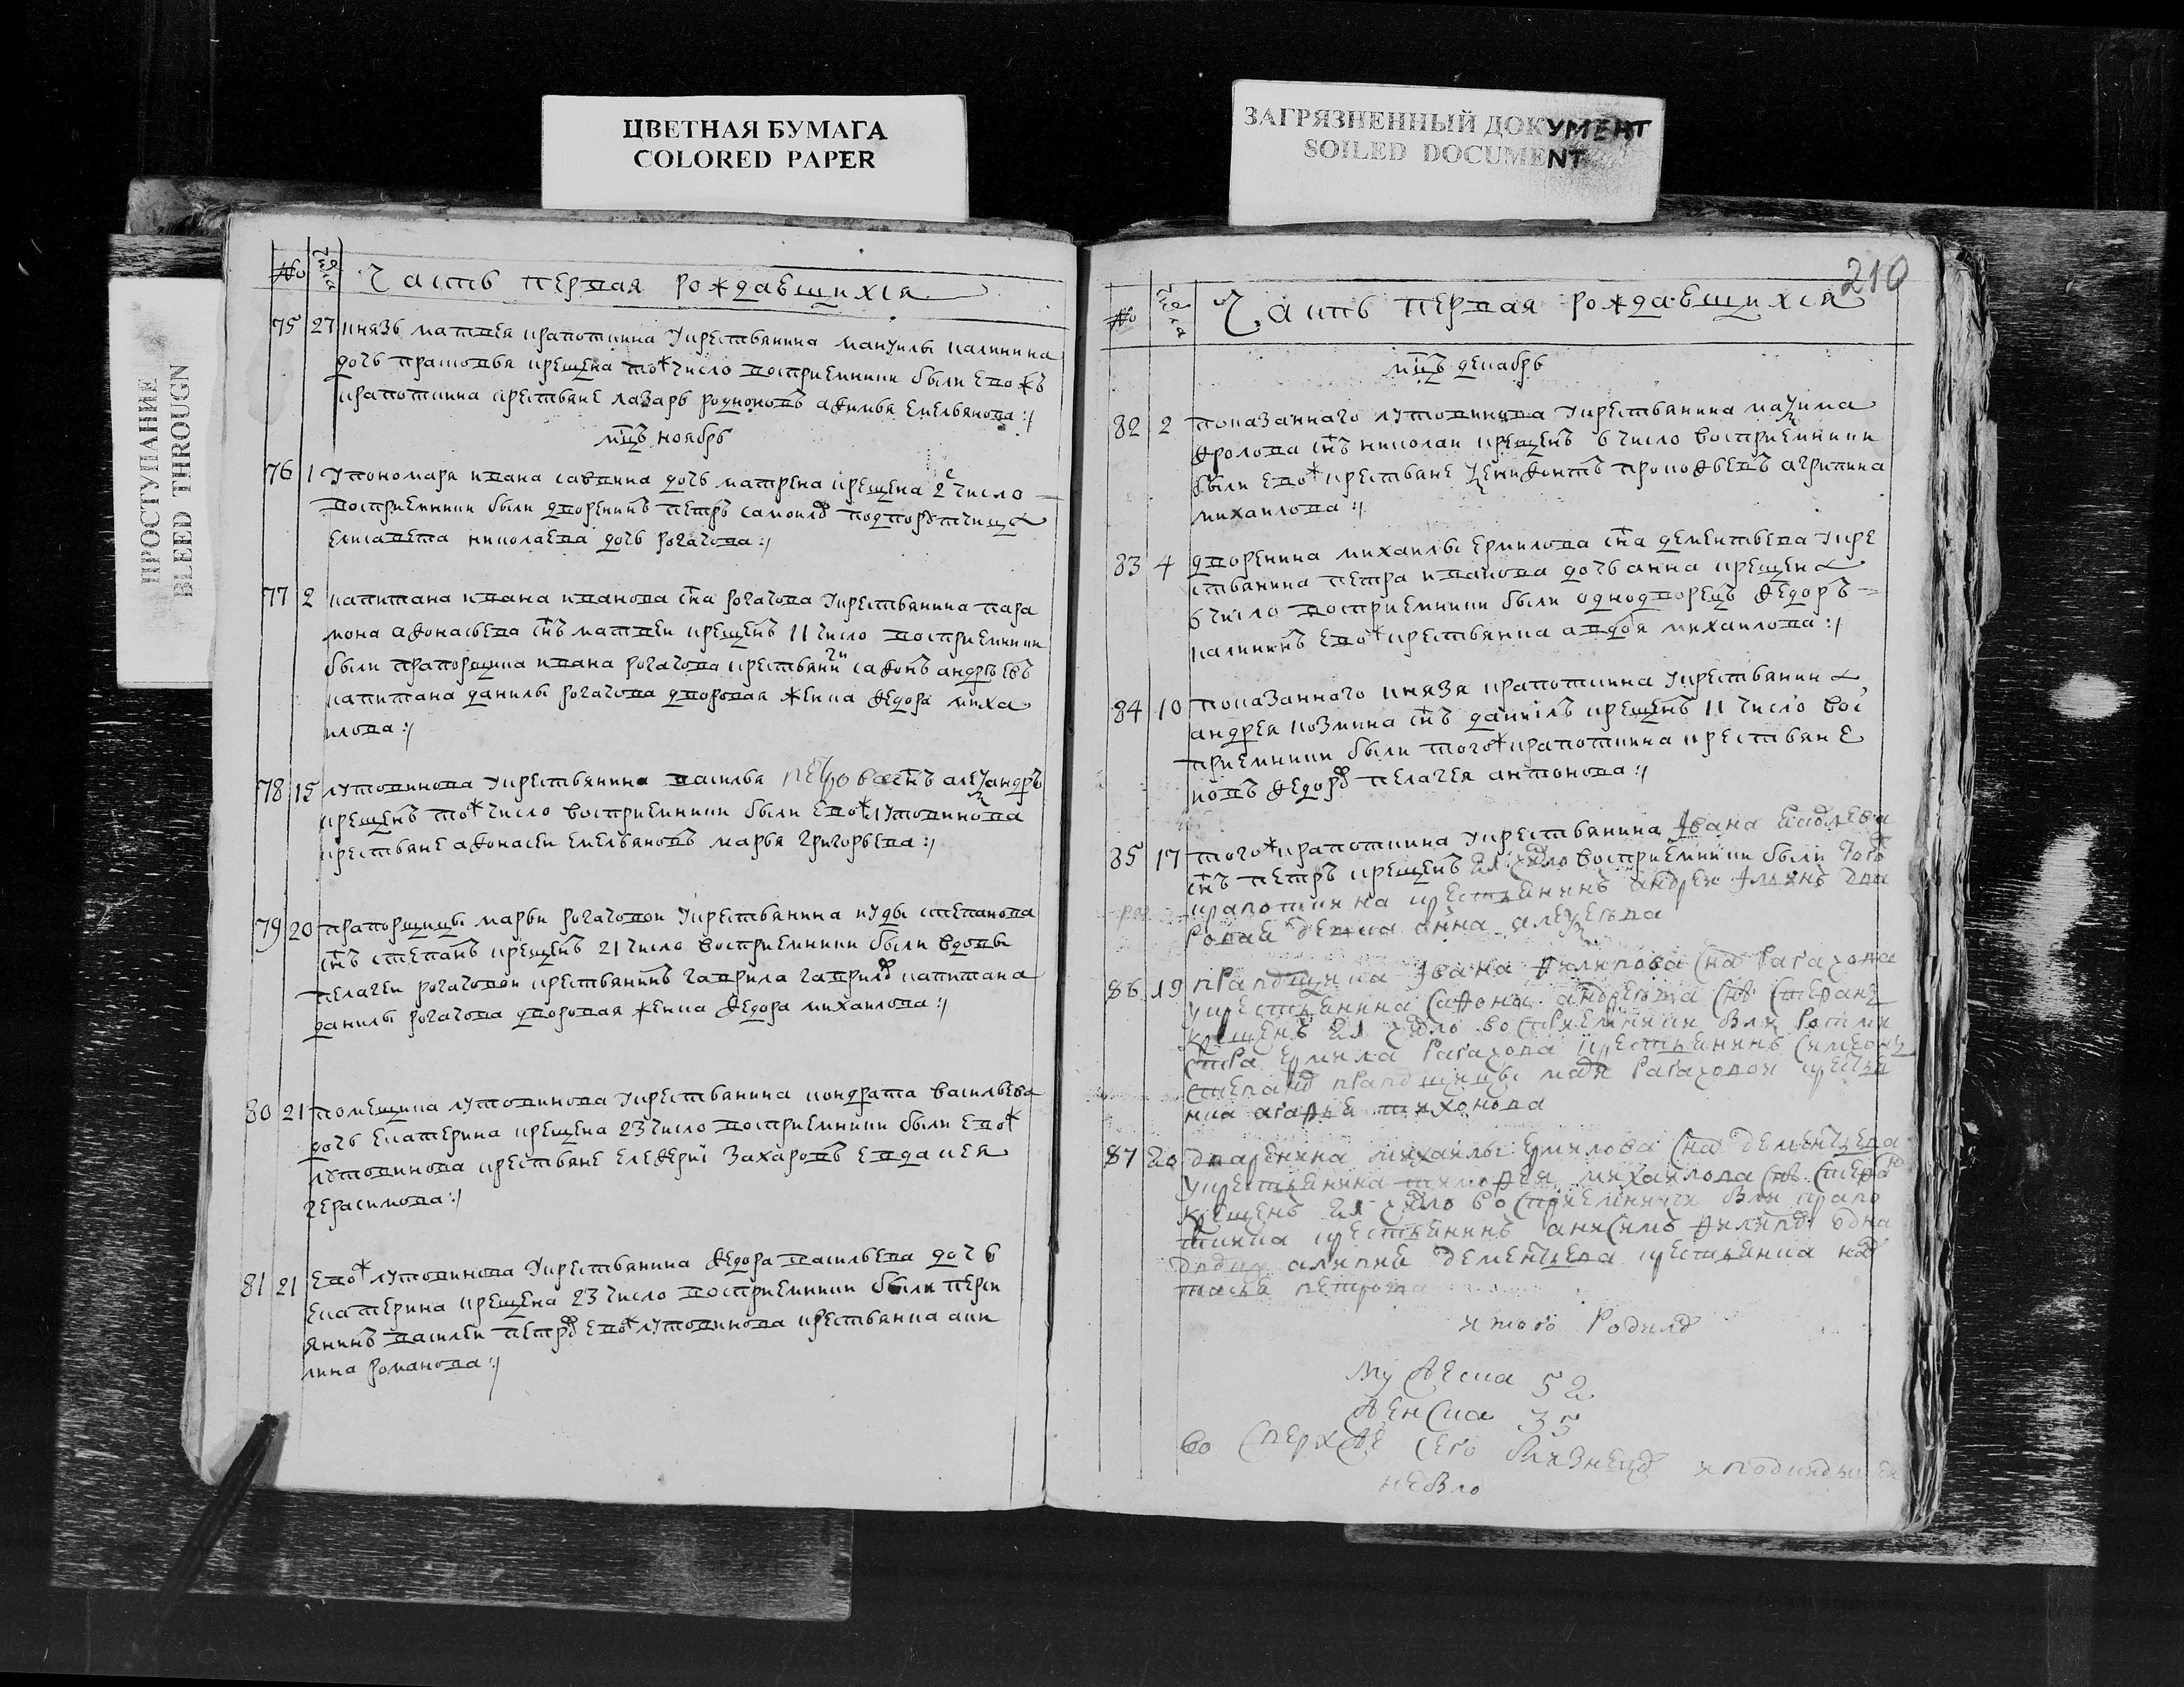 ЦВЕТНАЯ БУМАГА
COLORED PAPER
ЗАГРЯЗНЕННЫЙ ДОКУМЕНТ
SOILED DOCUMENT
ПРОСТУПАНИЕ
BLEED THROUGN
№ числа Часть первая рождавшихся
75 27 князь матвея кропоткина укрестьянина мануилы калинина
дочь прасковья крещена то ж число восприемники были ево ж ъ
кропоткина крестьяне лазарь родионовъ акилина емельянова :/
мцъ ноябрь
76 1 упономаря ивана саввина дочь матрена крещена 2 г число
восприемники были дворенинъ петръ самоилов подпорутчица
елисавета николаева дочь рогачова :/
77 2 капитана ивана иванова сна рогачова укрестьянина пара
мона афонасьева снъ матвеи крещенъ 11 число восприемники
были прапорщика ивана рогачова крестьянинъ сафонъ андреевъ
капитана данилы рогачова дворовая женка федора миха
илова :/
78 15 лутовинова укрестьянина василья петрова снъ алеѯандръ
крещенъ то ж число восприемники были ево ж лутовинова
крестьяне афонасеи емельяновъ марья григорьева :/
79 20 прапорщицы марьи рогачовои укрестьянина иуды степанова
снъ степанъ крещенъ 21 число восприемники были вдовы
пелагеи рогачовои крестьянинъ гаврила гаврилов капитана
данилы рогачова дворовая женка федора михаилова :/
80 21 помещика лутовинова укрестьянина кондрата васильева
дочь екатерина крещена 23 число восприемники были ево ж
лутовинова крестьяне елеферіи захаровъ евдакея
герасимова :/
81 21 ево ж лутовинова укрестьянина федора васильева дочь
екатерина крещена 23 число восприемники были
василеи петров ево ж лутовинова крестьянка аки
лина романова :/
210
№ числа Часть первая рождавшихся
мцъ декабрь
82 2 показаннаго лутовинова укрестьянина маѯима
фролова снъ николаи крещенъ 6 число восприемники
были ево ж крестьяне ѯенифонтъ прокофьевъ агрипина
михаилова :/
83 4 дворенина михаилы ермилова сна дементьева укре
стьянина петра иванова дочь анна крещена
6 число восприемники были однодворецъ федоръ
калининъ ево ж крестьянка авдоя михаилова :/
84 10 показаннаго князя кропоткина укрестьянина
андрея козмина снъ даниилъ крещенъ 11 число вос
приемники были того ж кропоткина крестьяне
иовъ федоров пелагея антонова :/
85 17 того ж кропоткина укрестьянина Івана
снъ петръ крещенъ 21 число восприемники были того
кропоткина крестьянинъ андреи Ілинъ два
ровае девка анна алеѯеева
86 19 прапощика Івана филипова сна Рагачова
укрестьянина сафона андреева снъ стефанъ
крещенъ 21 число восприемники были ротми
стра ермила Рагачова крестьянинъ симеонъ
степанов прапощицы Рагачовои крестья
нка агафье тихонова
87 20 дваренина михаилы Ермилова сна дементьева
укрестьянина тимофея михаилова снъ стефан
крещенъ 21 число восприемники были крапо
ткина крестьянинъ анисимъ филипов одна
дворца дементьева крестьянка нас
тасье петрова
итого Родилос
мужеска 52
женска 35
во сверхже сего близнецов и подкидышеи
небыло